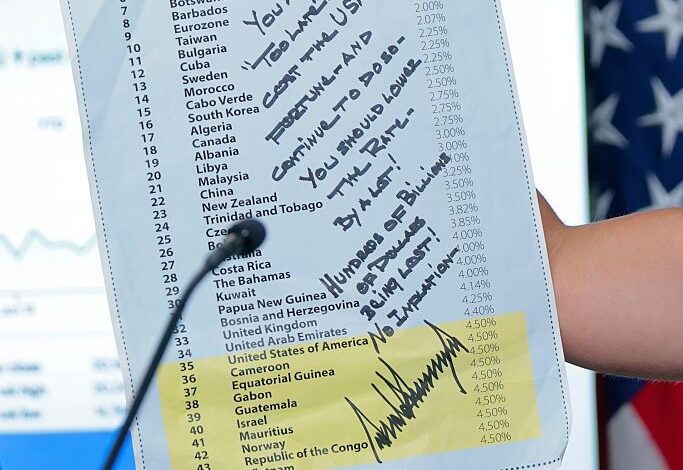 7
8
9
10
11
12
13
14
15
16
17
18
19
20
21
22
23
24
25
26
27
28
29
30
32
33
34
35
36
37
38
39
40
41
42
43
Botswana
Barbados
Eurozone
Taiwan
Bulgaria
Cuba
Sweden
Morocco
Cabo Verde
South Korea
Algeria
Canada
Albania
Libya
Malaysia
China
New Zealand
Trinidad and Tobago
Costa Rica
The Bahamas
Kuwait
Papua New Guinea
Bosnia and Herzegovina
United Kingdom
United Arab Emirates
United States of America
Cameroon
Equatorial Guinea
Gabon
Guatemala
Israel
Mauritius
Norway
Republic of the Congo
Vietnam
2.00%
2.07%
2.25%
2.25%
2.25%
2.50%
2.50%
2.75%
2.75%
3.00%
3.00%
3.25%
3.50%
3.50%
3.82%
3.85%
4.00%
4.00%
4.00%
4.00%
4.14%
4.25%
4.40%
4.50%
4.50%
4.50%
4.50%
4.50%
4.50%
4.50%
4.50%
4.50%
4.50%
YOU
"TOO LATE"
COST THE USA
FORTUNE - AND
CONTINUE TO DO SO -
YOU SHOULD LOWER
THE RATE -
BY A LOT!
HUNDREDS OF BILLIONS
OF DOLLARS
BEING LOST!
NO INFLATION -